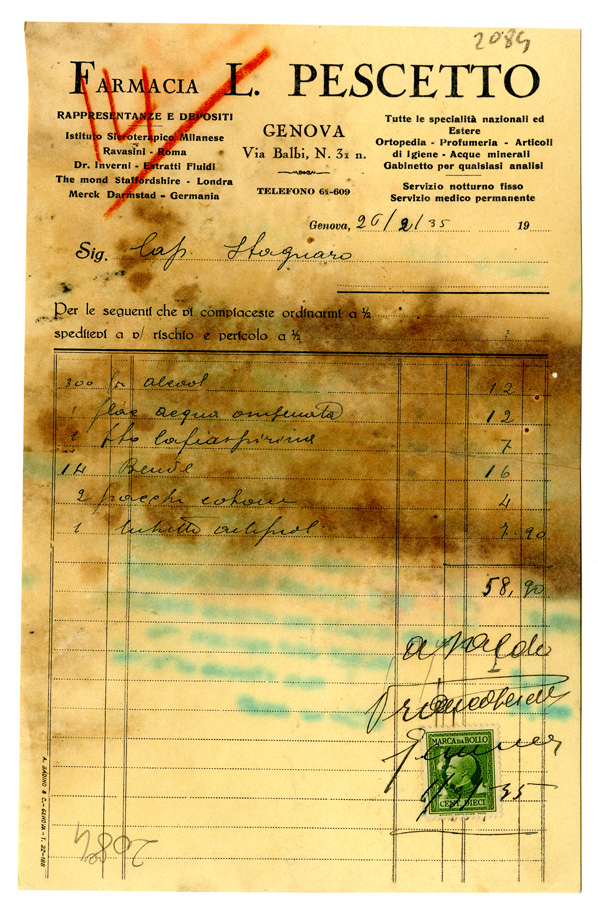 2084
FARMACIA L. PESCETTO
RAPPRESENTANZE E DEPOSITI
Istituto Sieroterapico Milanese
Ravasini - Roma
Dr. Inverni - Estratti Fluidi
The mond Staffordshire - Londra
Merck Darmstad - Germania
GENOVA
Via Balbi, N. 31 n.
TELEFONO 62-609
Tutte le specialità nazionali ed
Estere
Ortopedia - Profumeria - Articoli
di Igiene - Acque minerali
Gabinetto per qualsiasi analisi
Servizio notturno fisso
Servizio medico permanente
Genova, 26/2/35 19
Sig. Cap. Stagnaro
Per le seguenti che vi compiaceste ordinarmi a ½
speditevi a v/ rischio e pericolo a ½
300 gr alcool 12
1 flac acqua 12
1 7
14 Bende 16
2 pacchi cotone 4
1 tubetto 7.90
58,90
a saldo
MARCA DA BOLLO
CENT. DIECI
35
2084